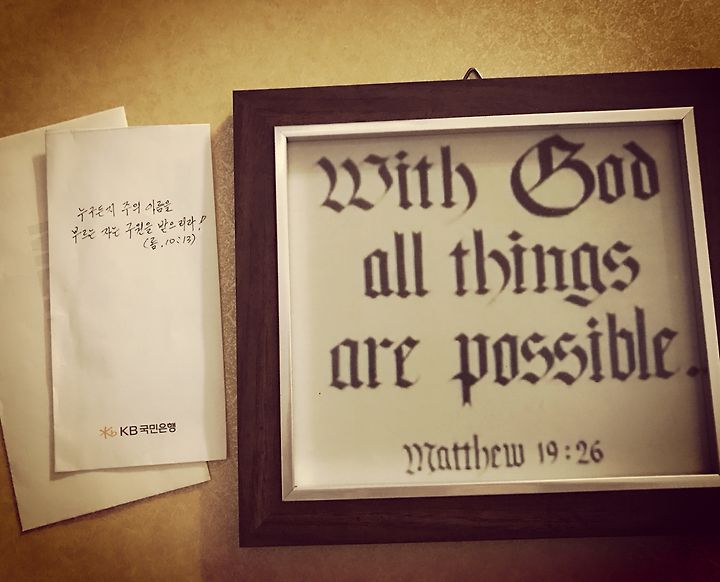 누구든지 주의 이름을
부르는 자는 구원을 받으리라!
(롬.10:13)
KB 국민은행
With God
all things
are possible.
Matthew 19:26